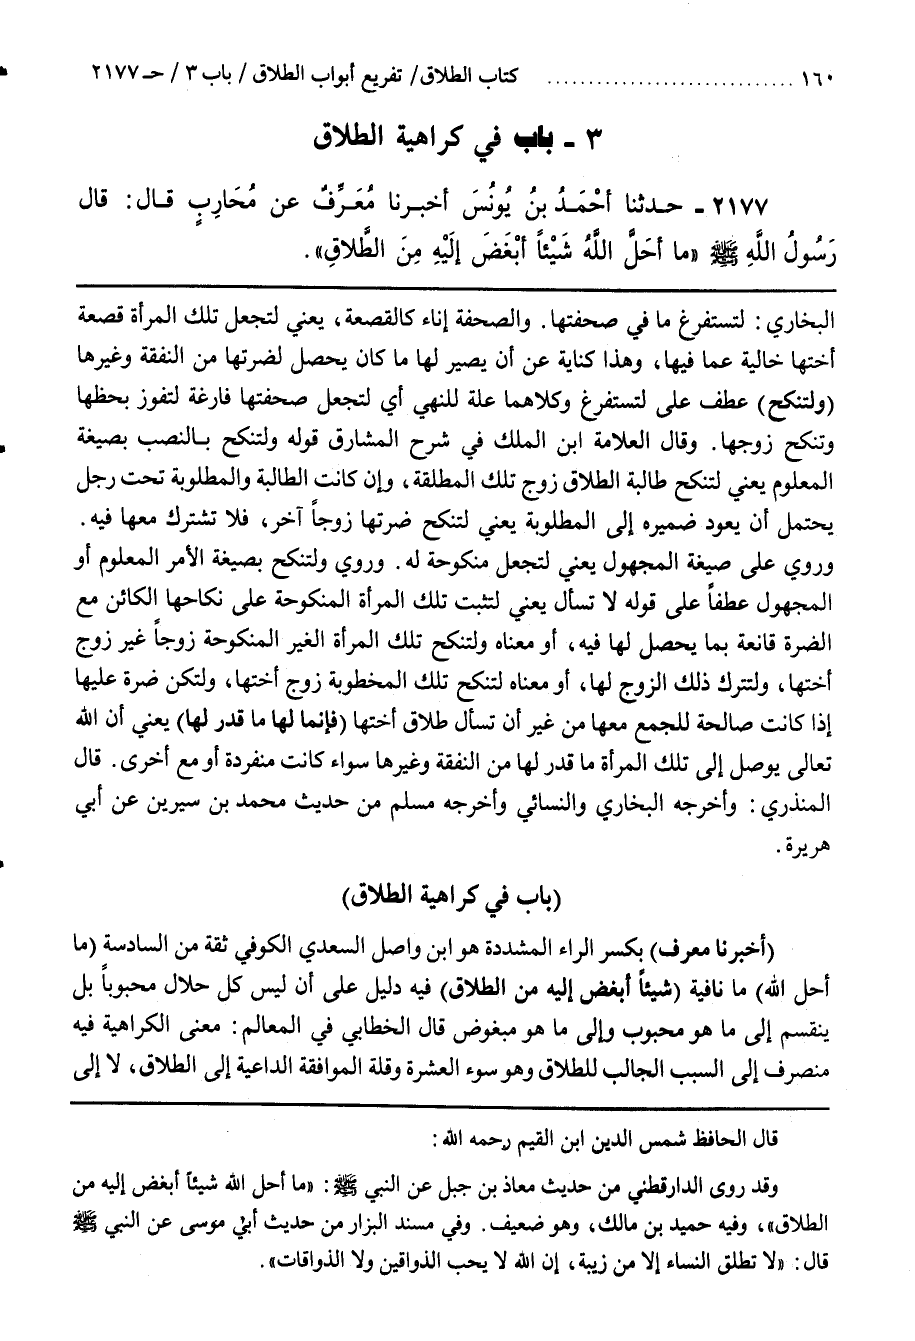 ١٦٠ ............................. كتاب الطلاق/ تفريع أبواب الطلاق/ باب ٣/ حـ ٢١٧٧
٣ - باب في كراهية الطلاق
٢١٧٧ - حدثنا أحْمَدُ بنُ يُونُسَ أخبرنا مُعَرِّفٌ عن مُحَارِبٍ قال: قال
رَسُولُ اللَّهِ ﷺ «ما أحَلَّ اللَّهُ شَيْئاً أبْغَضَ إلَيْهِ مِنَ الطَّلاقِ».
البخاري: لتستفرغ ما في صحفتها. والصحفة إناء كالقصعة، يعني لتجعل تلك المرأة قصعة
أختها خالية عما فيها، وهذا كناية عن أن يصير لها ما كان يحصل لضرتها من النفقة وغيرها
(ولتنكح) عطف على لتستفرغ وكلاهما علة للنهي أي لتجعل صحفتها فارغة لتفوز بحظها
وتنكح زوجها. وقال العلامة ابن الملك في شرح المشارق قوله ولتنكح بالنصب بصيغة
المعلوم يعني لتنكح طالبة الطلاق زوج تلك المطلقة، وإن كانت الطالبة والمطلوبة تحت رجل
يحتمل أن يعود ضميره إلى المطلوبة يعني لتنكح ضرتها زوجاً آخر، فلا تشترك معها فيه.
وروي على صيغة المجهول يعني لتجعل منكوحة له. وروي ولتنكح بصيغة الأمر المعلوم أو
المجهول عطفاً على قوله لا تسأل يعني لتثبت تلك المرأة المنكوحة على نكاحها الكائن مع
الضرة قانعة بما يحصل لها فيه، أو معناه ولتنكح تلك المرأة الغير المنكوحة زوجاً غير زوج
أختها، ولتترك ذلك الزوج لها، أو معناه لتنكح تلك المخطوبة زوج أختها، ولتكن ضرة عليها
إذا كانت صالحة للجمع معها من غير أن تسأل طلاق أختها (فإنما لها ما قدر لها) يعني أن الله
تعالى يوصل إلى تلك المرأة ما قدر لها من النفقة وغيرها سواء كانت منفردة أو مع أخرى. قال
المنذري: وأخرجه البخاري والنسائي وأخرجه مسلم من حديث محمد بن سيرين عن أبي
هريرة.
(باب في كراهية الطلاق)
(أخبرنا معرف) بكسر الراء المشددة هو ابن واصل السعدي الكوفي ثقة من السادسة (ما
أحل الله) ما نافية (شيئاً أبغض إليه من الطلاق) فيه دليل على أن ليس كل حلال محبوباً بل
ينقسم إلى ما هو محبوب وإلى ما هو مبغوض قال الخطابي في المعالم: معنى الكراهية فيه
منصرف إلى السبب الجالب للطلاق وهو سوء العشرة وقلة الموافقة الداعية إلى الطلاق، لا إلى
قال الحافظ شمس الدين ابن القيم رحمه الله:
وقد روى الدارقطني من حديث معاذ بن جبل عن النبي ﷺ: «ما أحل الله شيئاً أبغض إليه من
الطلاق»، وفيه حميد بن مالك، وهو ضعيف. وفي مسند البزار من حديث أبي موسى عن النبي ﷺ
قال: «لا تطلق النساء إلا من زيبة، إن الله لا يحب الذواقين ولا الذواقات».